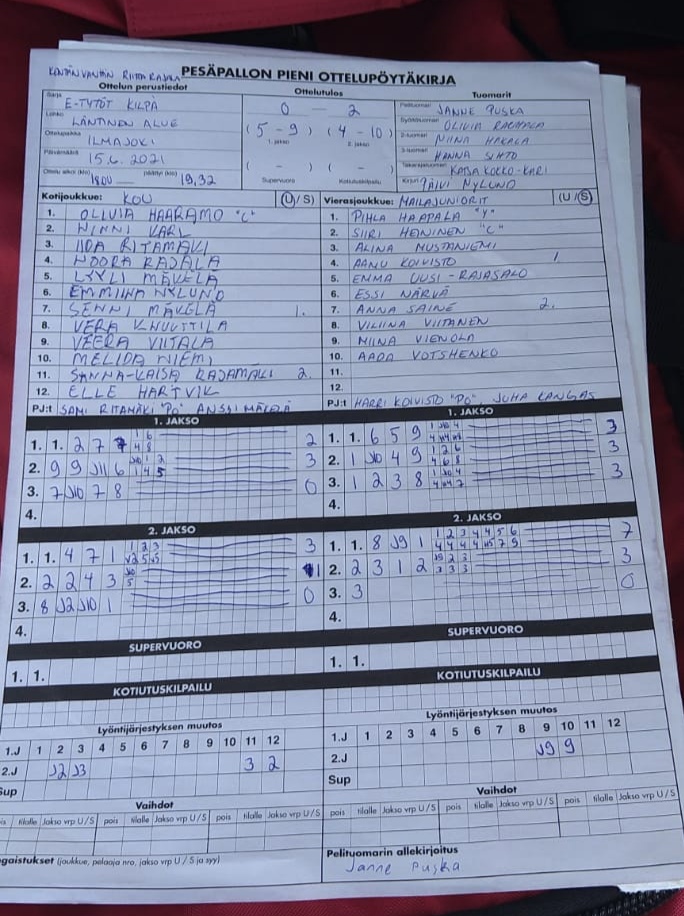 PESÄPALLON PIENI OTTELUPÖYTÄKIRJA
Ottelun perustiedot
Ottelutulos
Tuomarit
E-TYTÖT KILPA
0 - 2
JANNE PUSKA
LÄNTINEN ALUE
(5 - 9) (4 - 10)
OLIVIA
ILMAJOKI
1. jakso 2. jakso
NIINA HAKALA
15.6.2021
( - ) ( - )
HANNA
1800 — 19,32
Supervuoro Kotiutuskilpailu
KATJA KOKKO-KARI
PÄIVI NYLUND
Kotijoukkue: KOU (U/S)
Vierasjoukkue: MAILAJUNIORIT (U/S)
1. OLIVIA HAARAMO "C"
2. KARL
3. IIDA RITAMÄKI
4. NOORA RAJALA
5. LYYLI MÄKELÄ
6. EMMIINA NYLUND
7. SENNI MÄKELÄ 1.
8. VERA KNUUTTILA
9. VEERA VIITALA
10. MELIDA NIEMI
11. SANNA-KAISA RAJAMÄKI 2.
12. ELLE HARTVIK
PJ:t SAMI RITAMÄKI "PO" ANSSI MÄKELÄ
1. PIHLA HAAPALA "Y"
2. SIIRI HEININEN "C"
3. ALINA MUSTANIEMI
4. AANU KOIVISTO 1.
5. EMMA UUSI-RAJASALO
6. ESSI NÄRVÄ
7. ANNA SAINE 2.
8. VILIINA VIITANEN
9. NIINA VIENOLA
10. AADA VOTSHENKO
11.
12.
PJ:t HARRI KOIVISTO "PO", JUHA KANGAS
1. JAKSO
1. 1. 2 7 7 2
2. 9 9 J11 6 3
3. 7 J10 7 8 0
4.
1. JAKSO
1. 1. 6 5 9 3
2. 1 J10 4 9 3
3. 1 2 3 8 3
4.
2. JAKSO
1. 1. 4 7 1 3
2. 2 2 4 3 1
3. 8 J2 J10 1 0
4.
2. JAKSO
1. 1. 8 J9 1 7
2. 2 3 1 2 3
3. 3 0
4.
SUPERVUORO
1. 1.
SUPERVUORO
1. 1.
KOTIUTUSKILPAILU
KOTIUTUSKILPAILU
Lyöntijärjestyksen muutos
1.J 1 2 3 4 5 6 7 8 9 10 11 12
2.J J2 J3 3 2
Sup
Lyöntijärjestyksen muutos
1.J 1 2 3 4 5 6 7 8 9 10 11 12
2.J J9 9
Sup
Vaihdot
tilalle Jakso vrp U/S pois tilalle Jakso vrp U/S pois tilalle Jakso vrp U/S
Vaihdot
pois tilalle Jakso vrp U/S pois tilalle Jakso vrp U/S pois tilalle Jakso vrp U/S
gaistukset (joukkue, pelaaja nro, jakso vrp U/S ja syy)
Pelituomarin allekirjoitus
Janne Puska